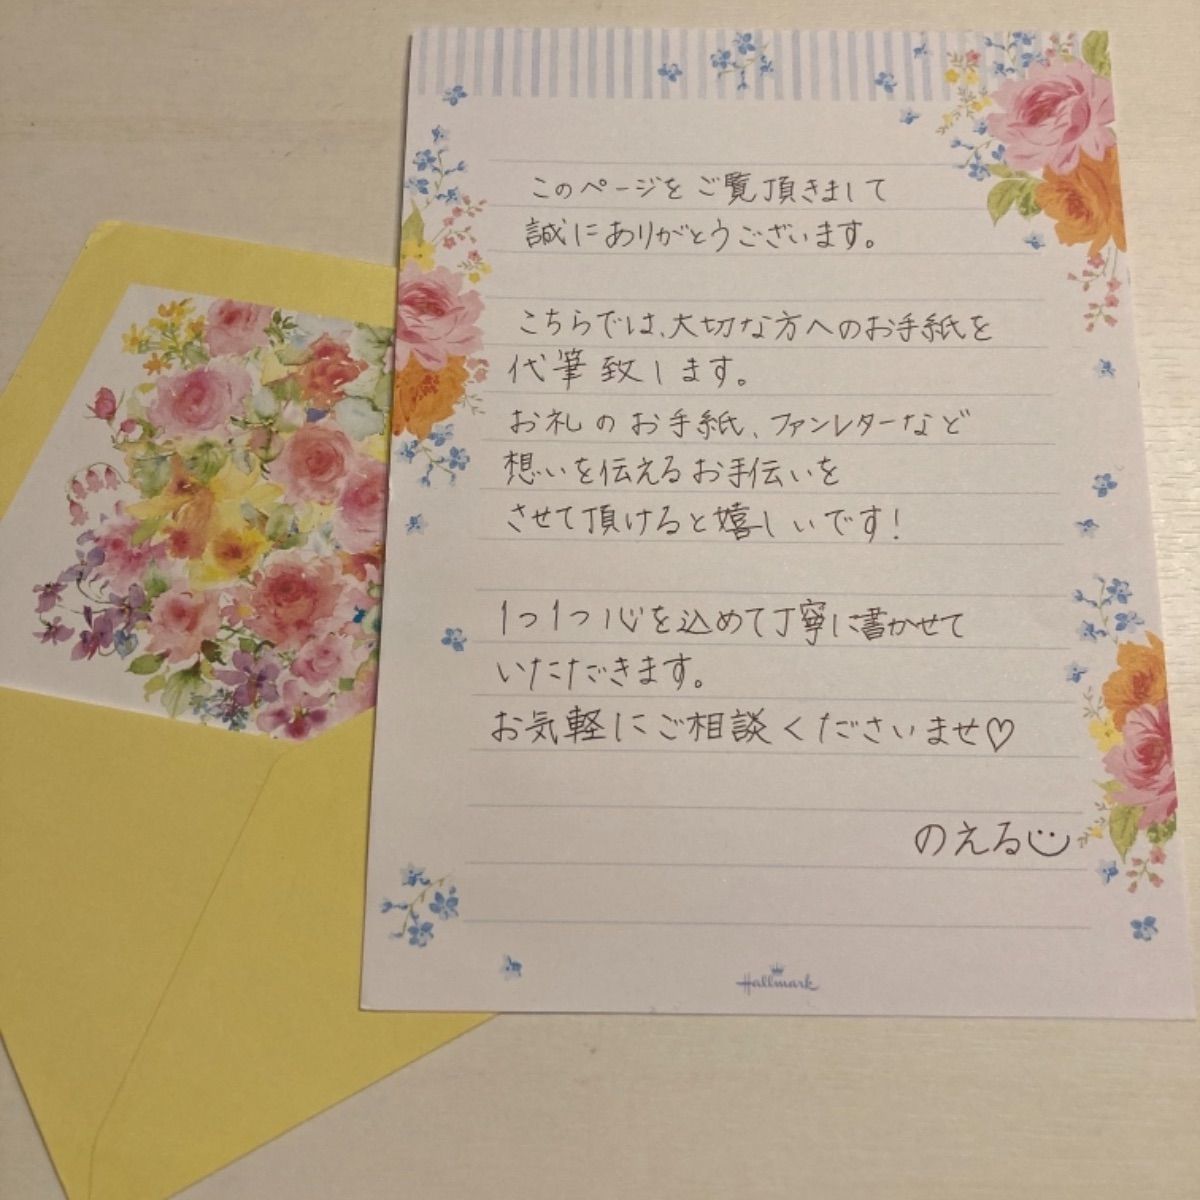 このページをご覧頂きまして
誠にありがとうございます。
こちらでは、大切な方へのお手紙を
代筆致します。
お礼のお手紙、ファンレターなど
想いを伝えるお手伝いを
させて頂けると嬉しいです!
1つ1つ心を込めて丁寧に書かせて
いただきます。
お気軽にご相談くださいませ♡
のえる
Hallmark